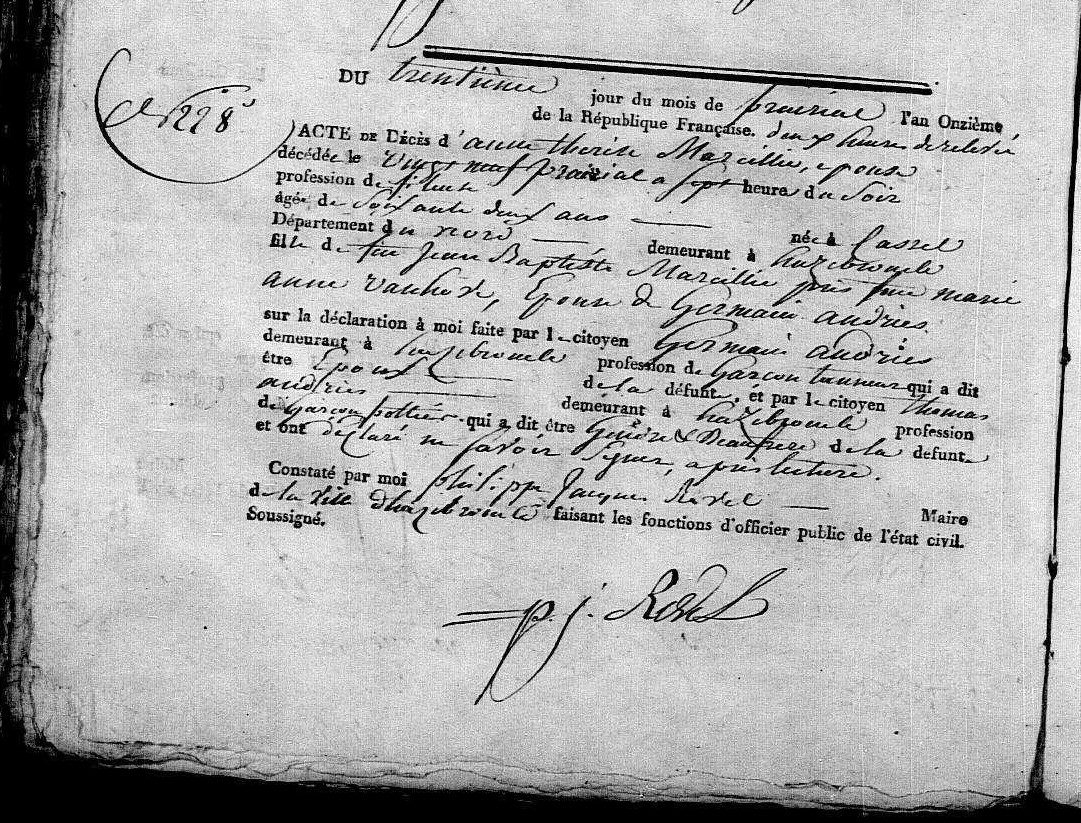 DU trentieme jour du mois de prairial l'an Onzième,
de la République Française. deux heures de relevée
N 228
ACTE DE Décès d'anne therese Mareillie, epouse
décédée le vingt neuf prairial a sept heures du Soir
profession de fileuse
âgée de Soixante deux ans née à Cassel
Département du nord demeurant à hazebrouck
fille de feu Jean Baptiste Mareillie feue marie
anne vanhove, Epouse de Germain andries.
sur la déclaration à moi faite par le citoyen Germain andries
demeurant à hazebrouck profession de Garcon tanneur qui a dit
être Epoux de la défunte, et par le citoyen thomas
andries demeurant à hazebrouck profession
de Garcon pottier qui a dit être Gendre & de la defunte
et ont declaré ne savoir signer, apres lecture.
Constaté par moi philippe Jacques Revel Maire
de la ville d'hazebrouck faisant les fonctions d'officier public de l'état civil.
Soussigné.
p. j. Revel